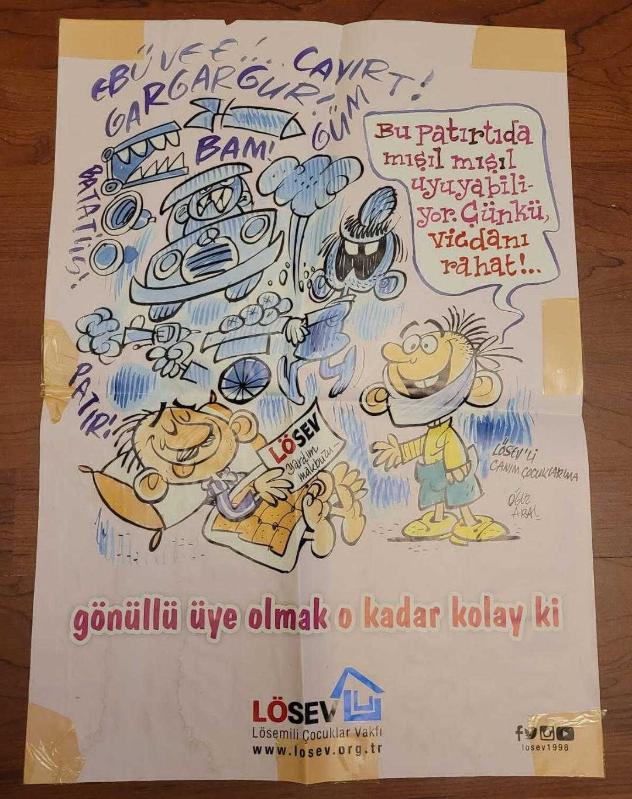 EBÜVEE!.. CAYIRT!
GARGARGUR!
GÜM
BAM!
PATIR!
Bu patırtıda
mışıl mışıl
uyuyabili-
yor. Çünkü,
Vicdanı
rahat!..
LÖSEV
yardım
makbuzu
LÖSEV'li
CANIM ÇOCUKLARIMA
Oğuz
ARAL
gönüllü üye olmak o kadar kolay ki
LÖSEV
Lösemili Çocuklar Vakfı
www.losev.org.tr
losev1998